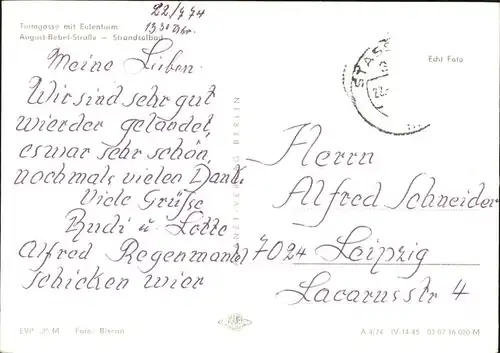 Turmgasse mit Eulenturm
August-Bebel-Straße — Strandsolbad
22/7 74
13 30 Uhr.
Echt Foto
Meine Lieben.
Wir sind sehr gut
wierder gelandet,
es war sehr schön,
nochmals vielen Dank.
Viele Grüße
Rudi u. Lotte
Alfred Regenmandl
schicken wier
STASS
22.
VERLAG BERLIN
Herrn
Alfred Schneider
7024 Leipzig
Lacarusstr 4
EVP M Foto: Biscan
A 4/74 IV-14-45 03 07 16 020 M